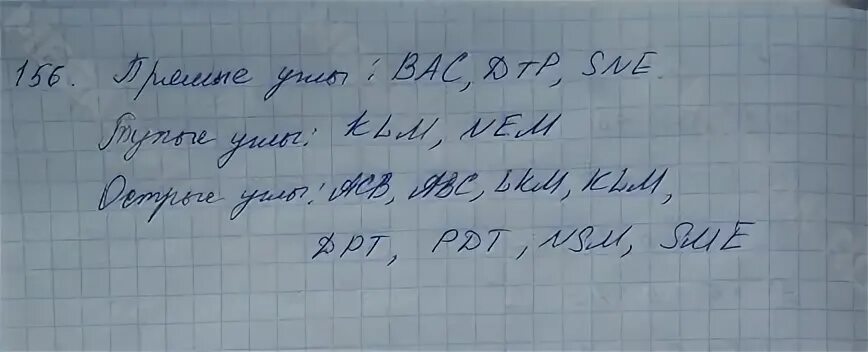 156. Прямые углы: BAC, DTP, SNE.
Тупые углы: KLM, NEM
Острые углы: ACB, ABC, LKM, KLM,
DPT, PDT, NSM, SME